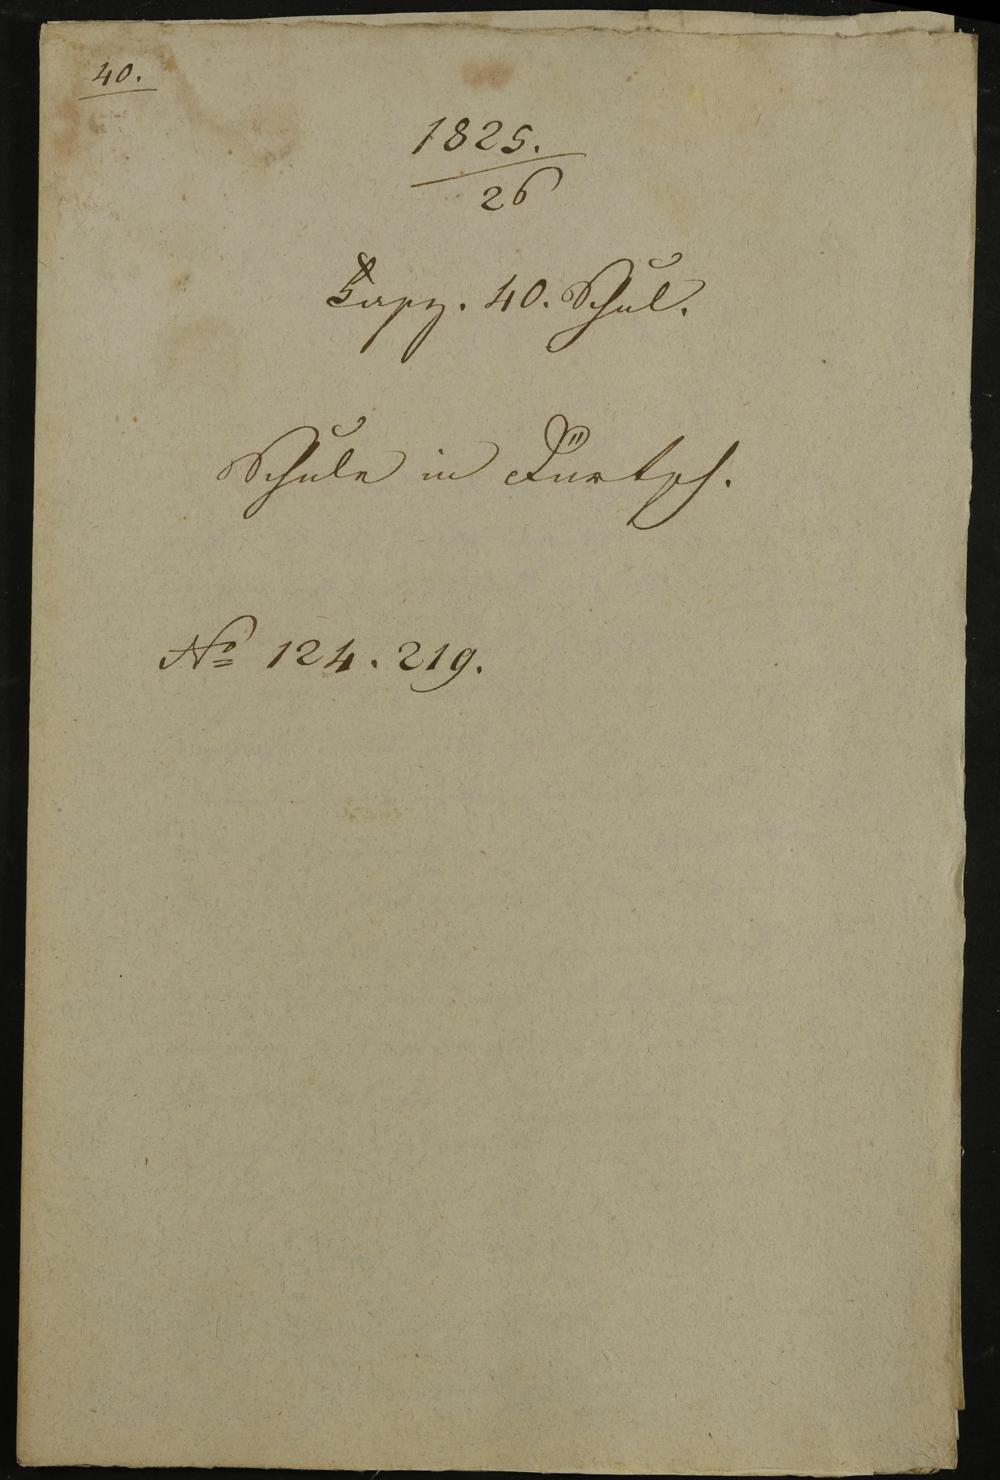 40.
1825.
26
40. Schul.
Schule in
No 124. 219.